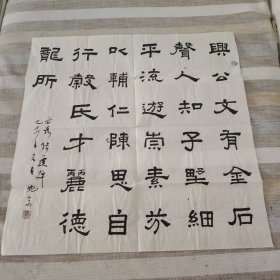 興公文有金石
聲人知子野細
平流遊崇素
以輔仁陳思自
行穀氏才麗德
龍所